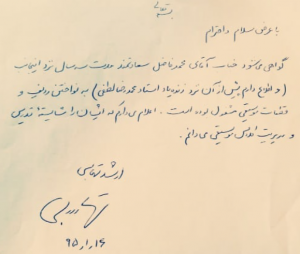 بسمه تعالی
با عرض سلام و احترام
گواهی می‌شود جناب آقای محمد فاضل سعادتمند مدت سه سال نزد اینجانب
(و انواع دلم پیش از آن نزد زنده‌یاد استاد محمدرضا لطفی) به نواختن ردیف و
قطعات موسیقی مشغول بوده است. اعلام می‌دارم که ایشان را شایستهٔ تدریس
و مدیریت کلاس موسیقی می‌دانم.
ارشد تهماسبی